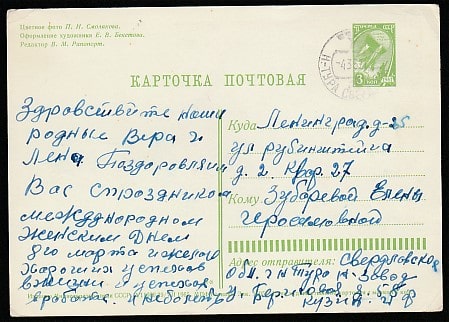 Цветное фото П. Н. Смолякова.
Оформление художника Е. В. Бекетова.
Редактор В. М. Рапопорт.
3
КАРТОЧКА ПОЧТОВАЯ
Здравствуйте наши
родные Вера и
Лена Поздоровляем
Вас с праздником
международном
женским Днем
8го марта и желаем
хороших успехов
в жизни и успехов
Куда Ленинград.д-25
ул рубинштейна
д. 2. квр. 27
Кому Зубаревой Елены
Адрес отправителя: Свердловская
обл. г. н Тура завод